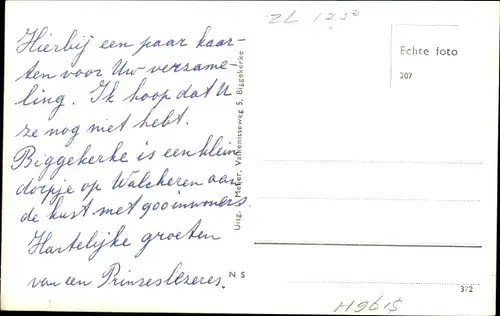 Hierbij een paar kaar-
ten voor Uw verzame-
ling. Ik hoop dat U
ze nog niet hebt.
Biggekerke is een klein
dorpje op Walcheren aan
de kust met 900 inwoners.
Hartelijke groeten
van een Prinseslezeres.
Uitg. J. Melier, Valkenisseweg 5, Biggekerke
N S
ZL 1250
Echte foto
207
372
H961S